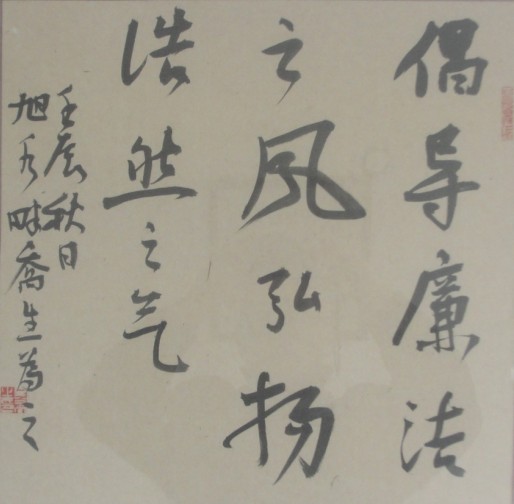 倡导廉洁
之风弘扬
浩然之气
壬辰秋日
旭东畔乔生为之